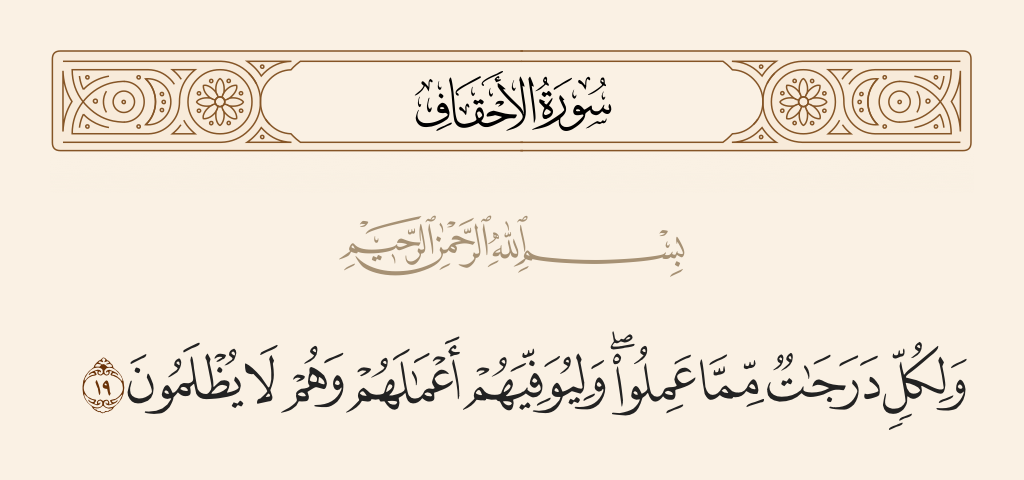 سُورَةُ الأَحْقَافِ
بِسْمِ ٱللَّهِ ٱلرَّحْمَٰنِ ٱلرَّحِيمِ
وَلِكُلٍّ دَرَجَٰتٌ مِّمَّا عَمِلُوا۟ ۖ وَلِيُوَفِّيَهُمْ أَعْمَٰلَهُمْ وَهُمْ لَا يُظْلَمُونَ ١٩